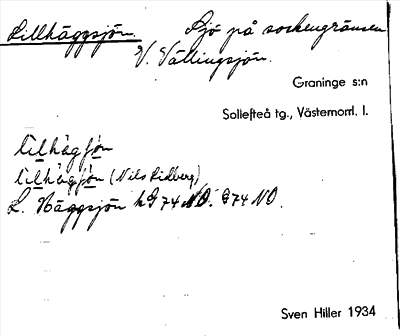 Lillhäggsjön. Sjö på sockengränsen
V. Vällingsjön.
Graninge s:n
Sollefteå tg., Västernorrl. l.
lilhägʃön
lilhägʃön (Nils Lidberg)
L. Häggsjön hG 74 NO. G 74 NO.
Sven Hiller 1934